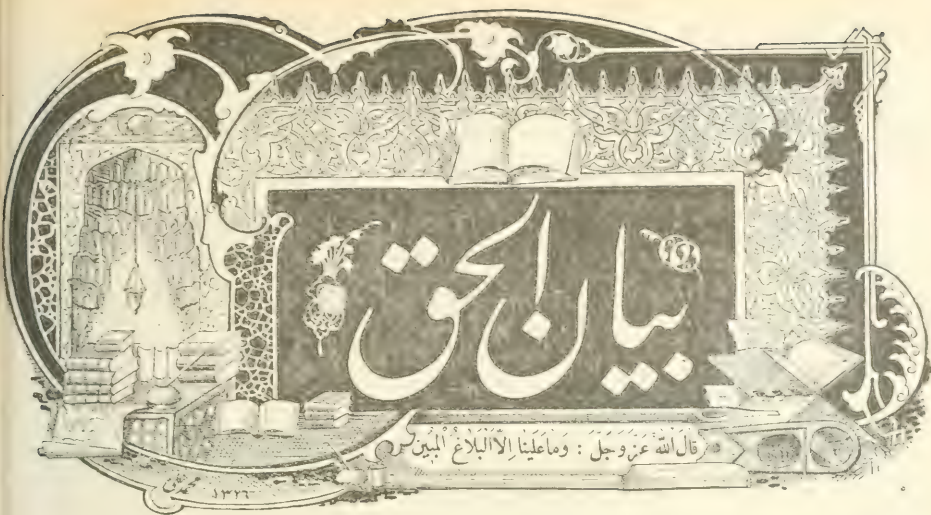 بيان الحق
قال الله عز وجل : وَمَا عَلَيْنَا إِلَّا الْبَلَاغُ الْمُبِين
١٣٢٦